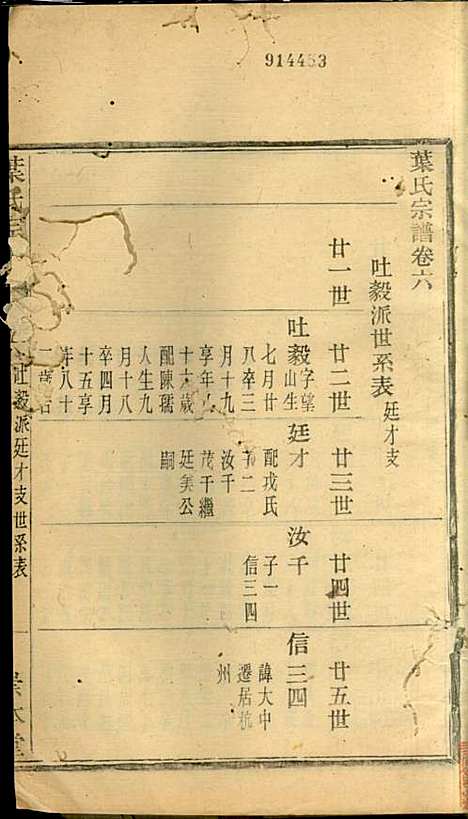 914453
葉氏宗譜卷六
吐毅派世系表 廷才支
廿一世
廿二世
廿三世
廿四世
廿五世
吐毅
字望
山生
七月廿
八卒三
月十九
享年
十六歲
配陳孺
人生九
月十八
卒四月
十五享
年八十
二歲
廷才
配戎氏
子二
汝千
茂千繼
廷美公
嗣
汝千
子一
信三四
信三四
諱大中
遷居杭
州
葉氏宗
吐毅派廷才支世系表
本堂